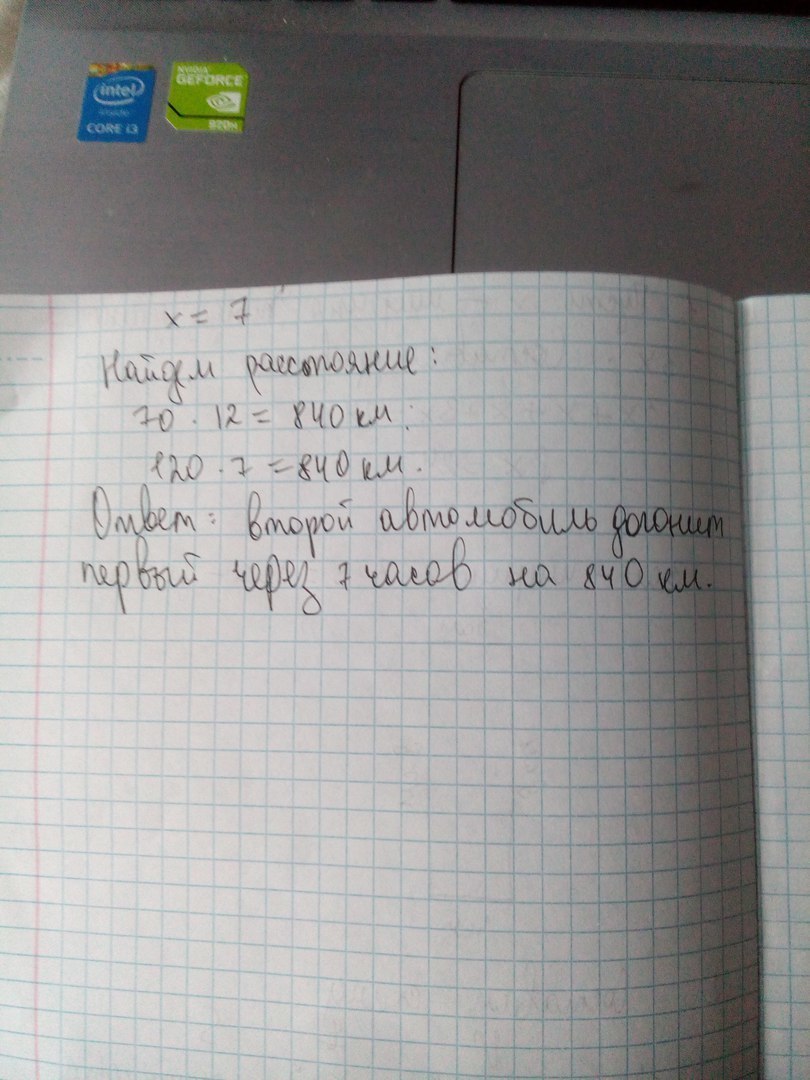 intel
inside
CORE i3
NVIDIA
GEFORCE
820M
x = 7
Найдем расстояние:
70 · 12 = 840 км;
120 · 7 = 840 км.
Ответ: второй автомобиль догонит
первый через 7 часов на 840 км.